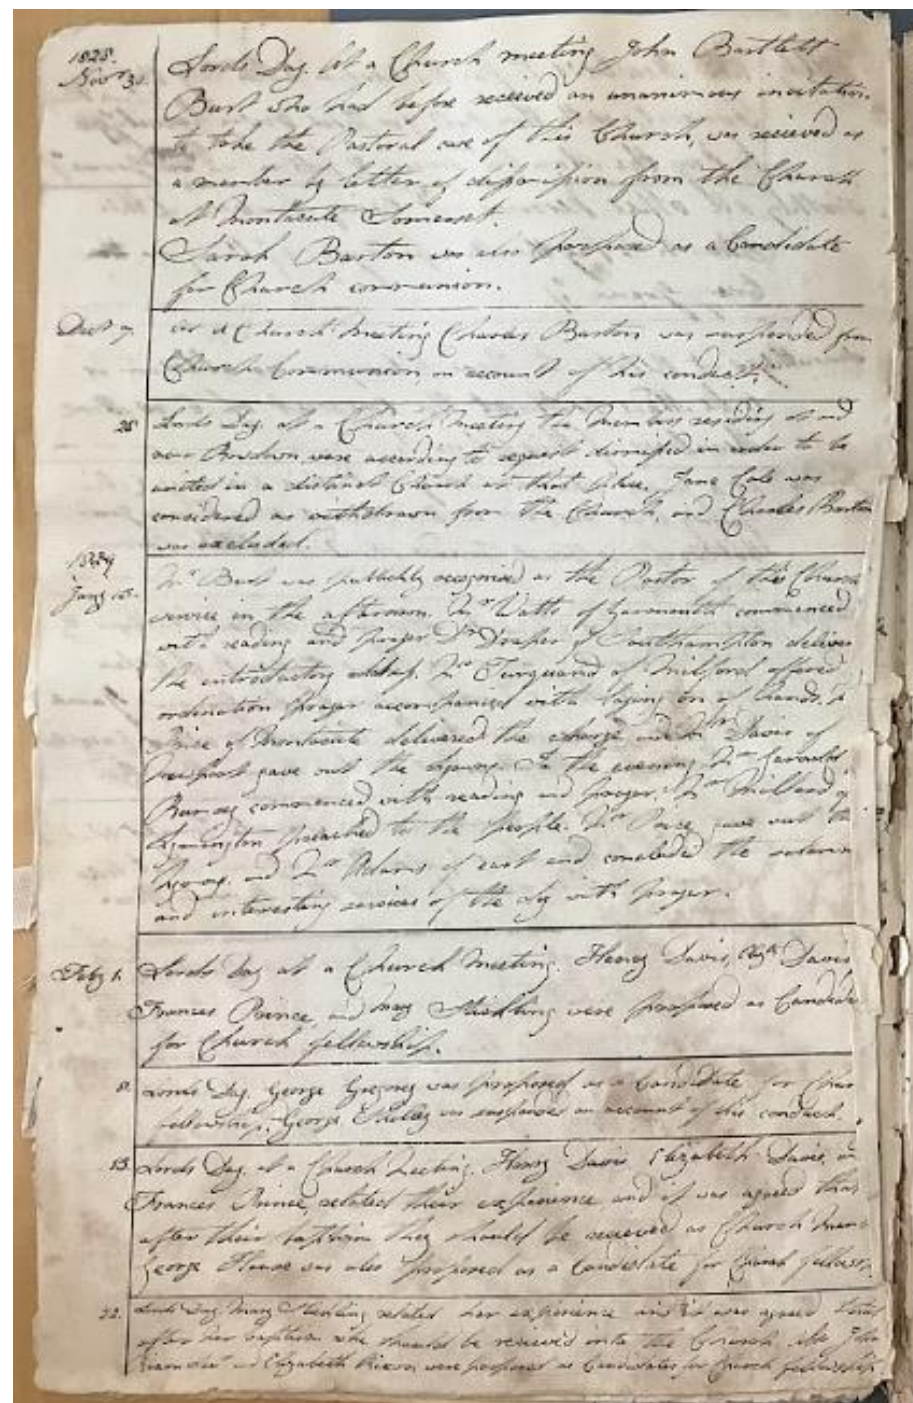 1828.
Novr 30. Lords Day. At a Church meeting John Bartlett
Burt who had before received an unanimous invitation
to take the Pastoral care of this Church, was recieved as
a member by letter of dismission from the Church
at Montacute Somerset.
Sarah Barton was also proposed as a Candidate
for Church communion.
Decr 7. At a Church Meeting Charles Barton was suspended from
Church Communion on account of his conduct.
28. Lords Day. at a Church Meeting the Members residing at and
near were according to request dismissed in order to be
united in a distinct Church at that place. Jane Cole was
considered as withdrawn from the Church, and Charles Barton
was excluded.
1829
Jany Mr Burt was publickly recognised as the Pastor of this Church
service in the afternoon. Mr Watts of commenced
with reading and prayer Mr Draper of Southampton deliver
the introductory address. Mr Turquand of Milford offered
ordination prayer accompanied with laying on of hands.
Price of Montacute delivered the charge and Mr Davis of
Newport gave out the hymns. In the evening Mr
Romsey commenced with reading and prayer. Mr Millard of
Lymington preached to the people. Mr gave out the
Hymns. and Mr Adams of east end concluded the solemn
and interesting services of the day with prayer.
Feby 1. Lords Day at a Church Meeting. Henry Davis, Elizth Davis,
Frances Prince, and Mary Stickling were proposed as Candidate
for Church fellowship.
8. Lords Day. George Gregory was proposed as a Candidate for
fellowship. George was suspended on account of his conduct.
15. Lords Day. at a Church Meeting. Henry Davis Elizabeth Davis,
Frances Prince, related their experience and it was agreed that
after their baptism they should be received as Church
George House was also proposed as a Candidate for Church
22. Lords Day. Mary Stickling related her experience and it was agreed that
after her baptism she should be received into the Church. John
and Elizabeth were proposed as Candidates for Church fellowship